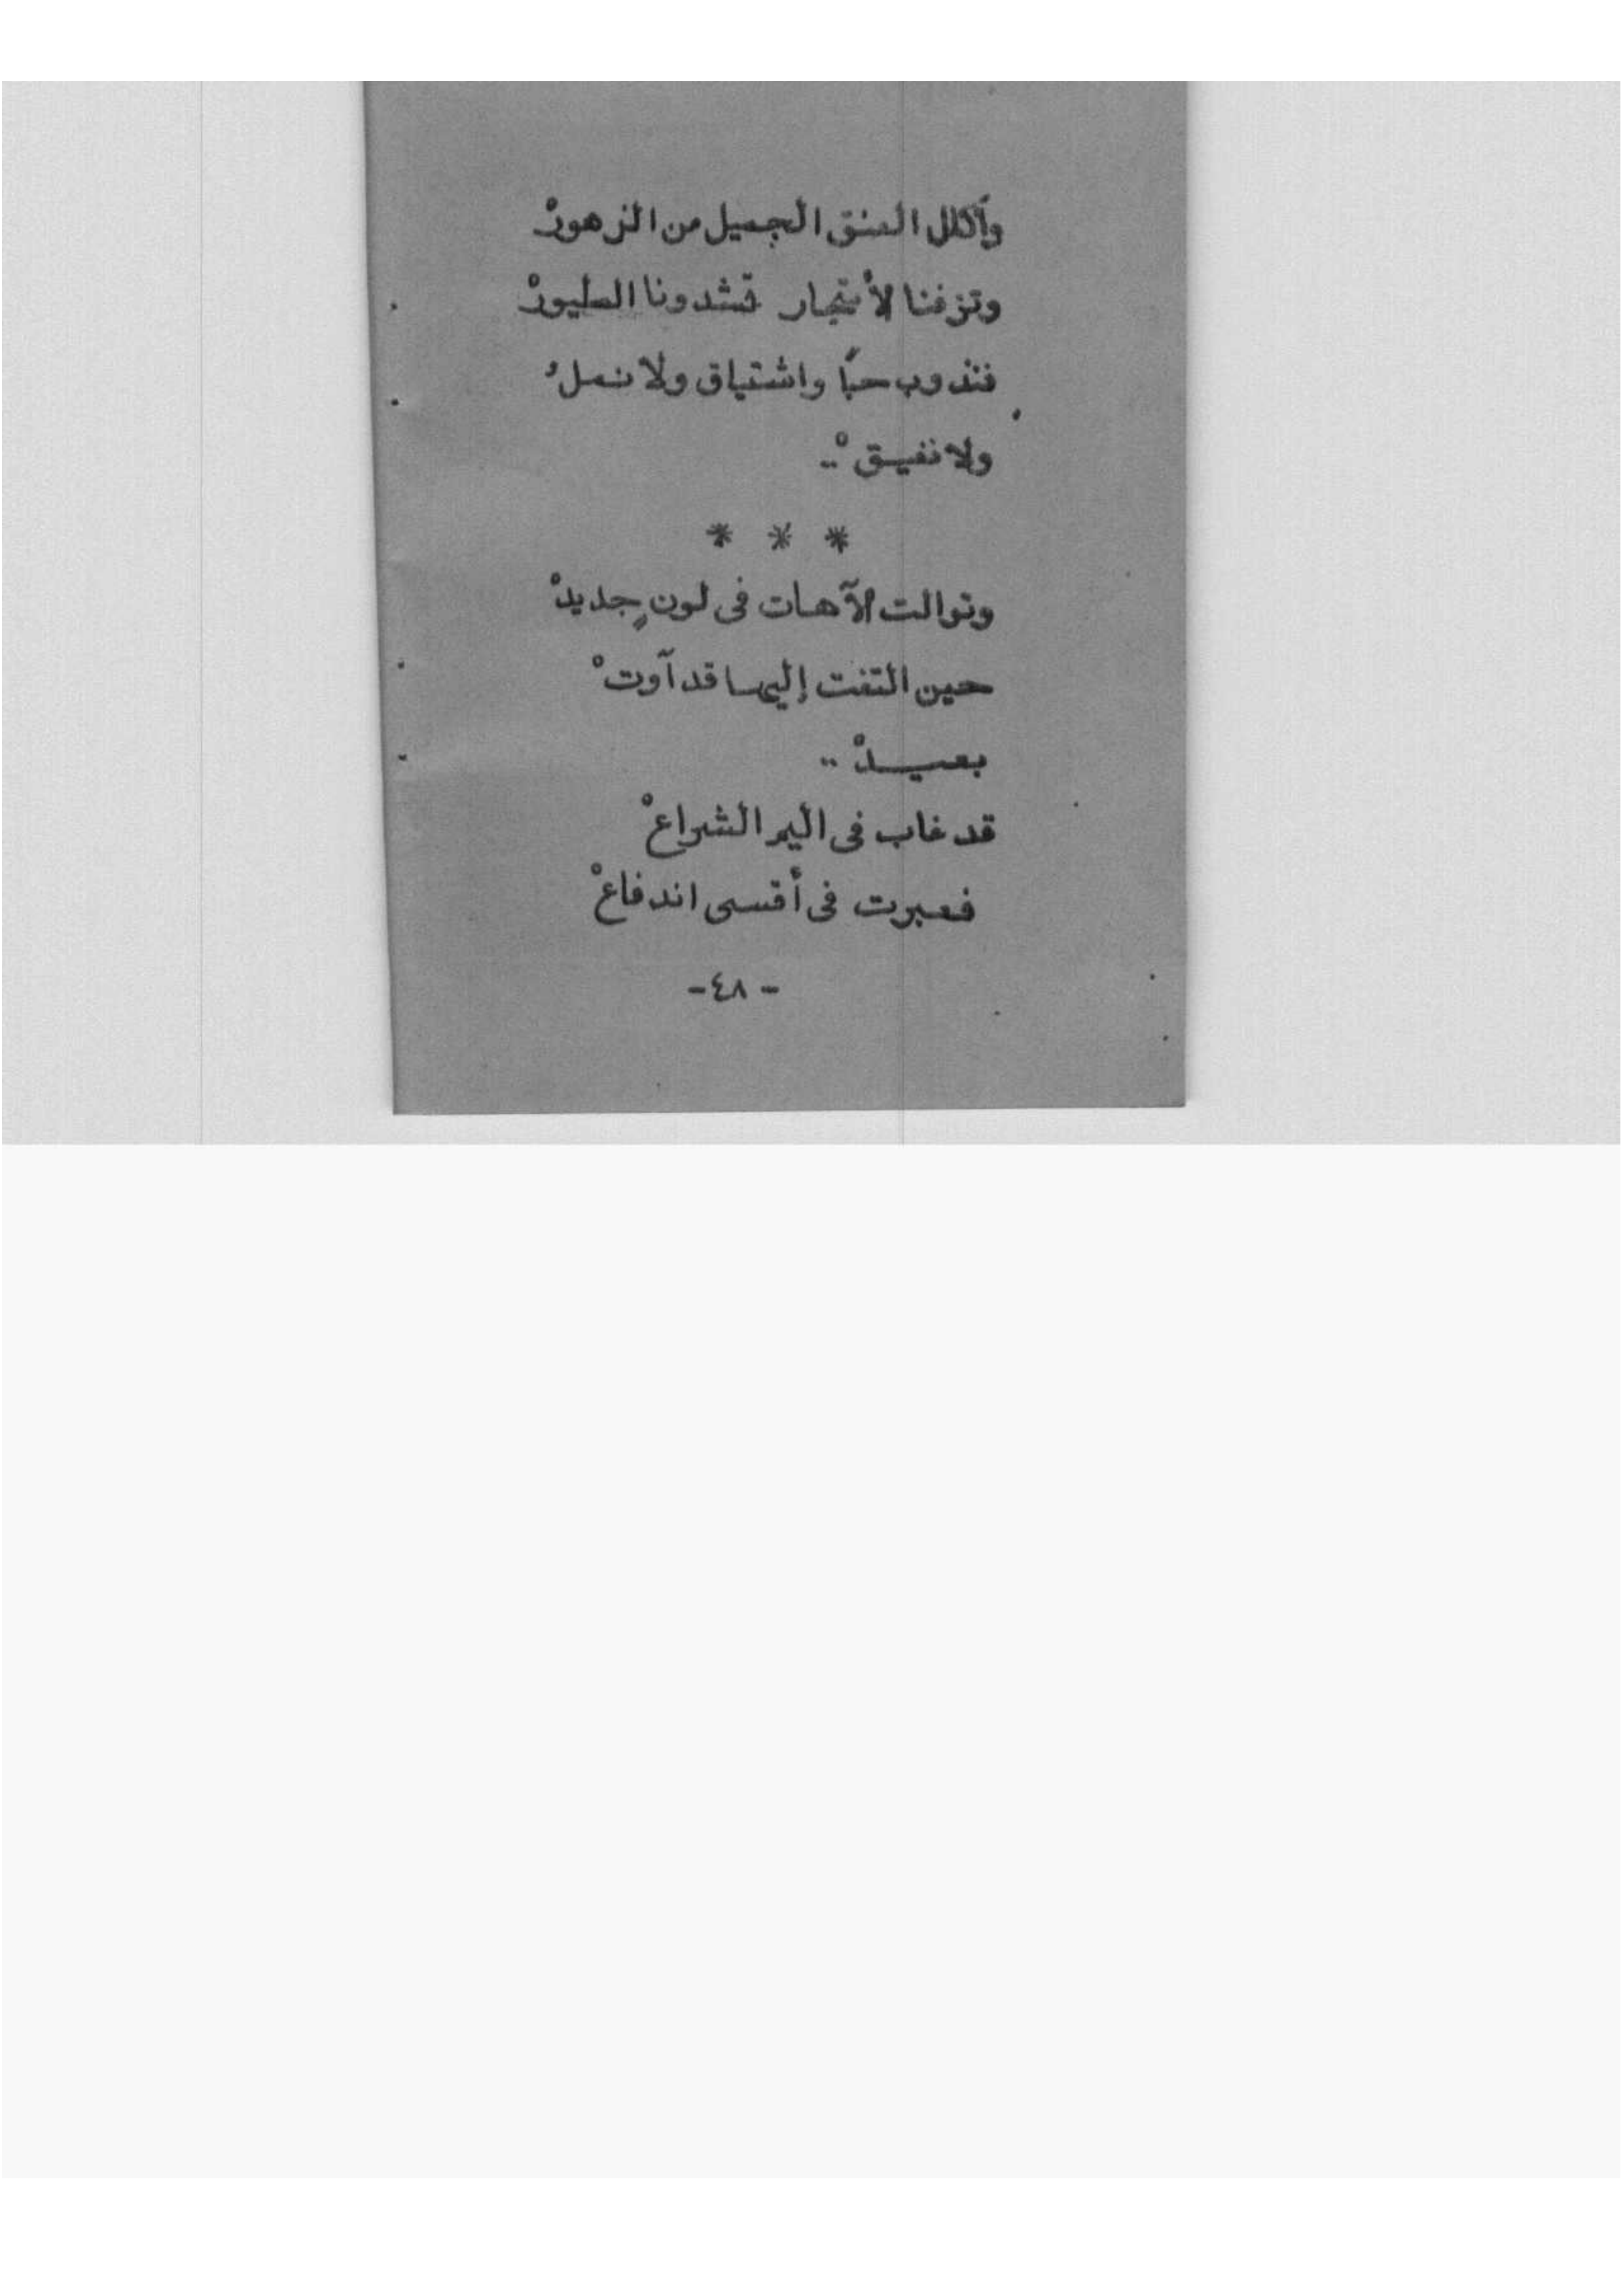 وأكلل العنق الجميل من الزهورْ
وتزفنا الأشجار تشدونا الطيورْ
فنذوب حبًا واشتياق ولا نملُ
ولا نفيقْ ..
* * *
وتوالت الآهات فى لونٍ جديدْ
حين التفت إليها قد آوتْ
بعيــدْ ..
قد غاب فى اليم الشراعْ
فعبرت فى أقسى اندفاعْ
- ٤٨ -